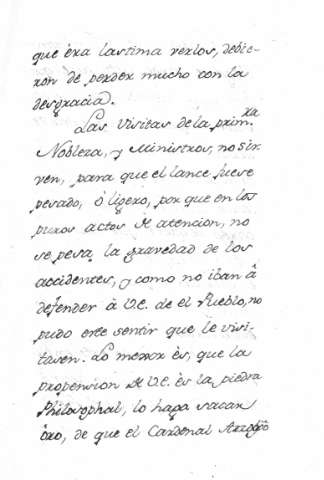 que èra lastima verlos, debie-
ron de perder mucho con la
desgracia.
Las Visitas de la prim.ra
Nobleza, y Ministros, no sir-
ven, para que el lance fuese
pesado, ò ligero, por que en los
puros actos de atencion, no
se pesa la gravedad de los
accidentes, y como no iban â
defender à V.E. de el Pueblo, no
pudo este sentir que le visi-
tasen. Lo menor ès, que la
propension de V.E. ès la piedra
Philosophal, lo haga sacar
òro, de que el Cardenal Arzobpõ